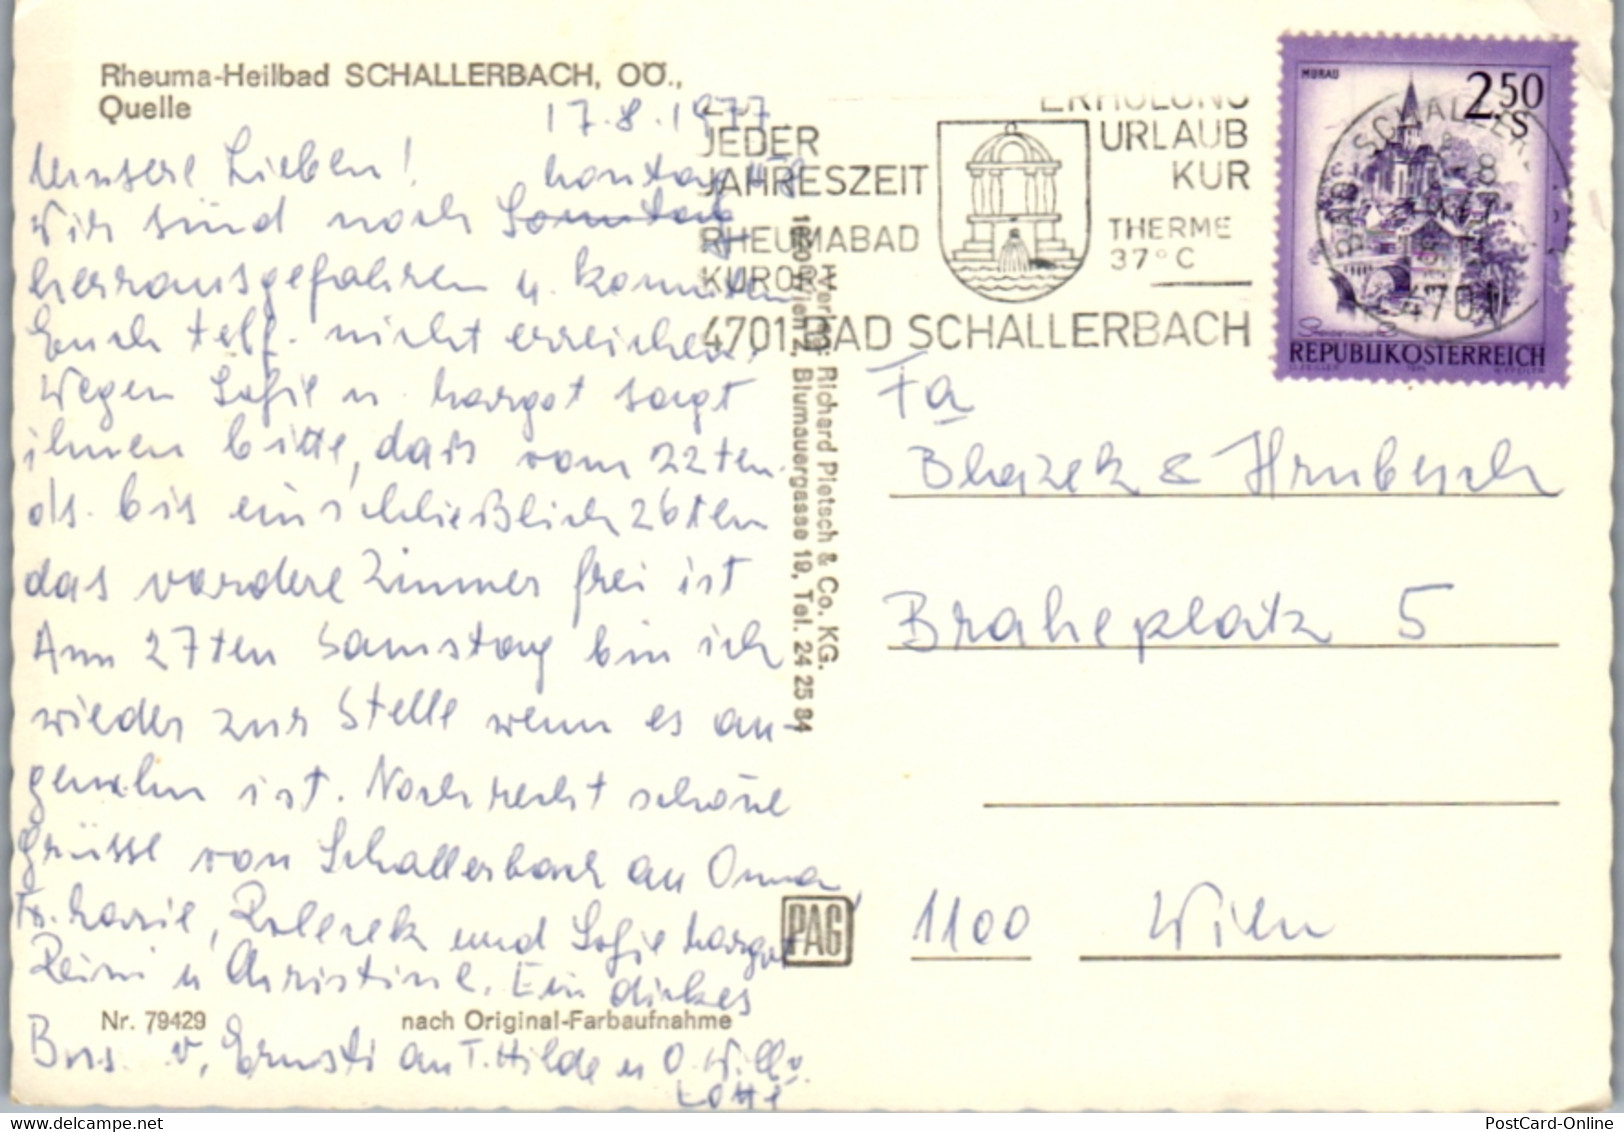 Rheuma-Heilbad SCHALLERBACH, OÖ.,
Quelle
17.8.1977
Unsere Lieben!
Wir sind noch Sonntag
herrausgefahren u. konnten
Euch telf. nicht erreichen.
Wegen Sofie u. Margot sagt
ihnen bitte, daß vom 22ten
ds. bis einschließlich 26ten
das vordere Zimmer frei ist
Am 27ten Samstag bin ich
wieder zur Stelle wenn es an-
genehm ist. Noch recht schöne
Grüsse von Schallerbach an Oma,
Fr. Marie, und Sofie Margot
Reini u Christine. Ein dickes
Nr. 79429 nach Original-Farbaufnahme
Bus. v. Ernsti an T. Hilde u O. Willy
Lotte
Verlag: Richard Pietsch & Co. KG.
Wien 2, Blumauergasse 19, Tel. 24 25 84
PAG
JEDER
JAHRESZEIT
RHEUMABAD
KURORT
ERHOLUNG
URLAUB
KUR
THERME
37°C
4701 BAD SCHALLERBACH
MURAU
2.50
S
REPUBLIK ÖSTERREICH
BAD SCHALLER
4701
Fa
Blazek & Hrubesch
Braheplatz 5
1100 Wien